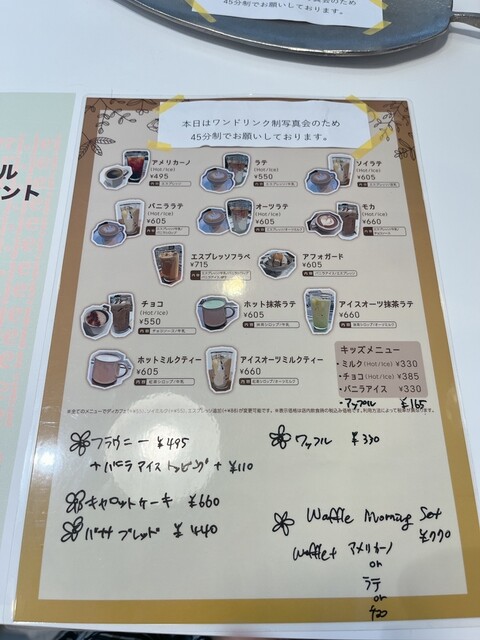 45分制でお願いしております。
ル
ント
本日はワンドリンク制写真会のため
45分制でお願いしております。
アメリカーノ
(Hot/Ice)
¥495
ラテ
(Hot/Ice)
¥550
ソイラテ
(Hot/Ice)
¥605
バニララテ
(Hot/Ice)
¥605
オーツラテ
(Hot/Ice)
¥605
モカ
(Hot/Ice)
¥660
エスプレッソフラペ
¥715
アフォガード
¥605
チョコ
(Hot/Ice)
¥550
ホット抹茶ラテ
¥605
アイスオーツ抹茶ラテ
¥660
ホットミルクティー
¥605
アイスオーツミルクティー
¥660
キッズメニュー
・ミルク(Hot/Ice) ¥330
・チョコ(Hot/Ice) ¥385
・バニラアイス ¥330
・アップル ¥165
ブラウニー ¥495
+バニラアイストッピング + ¥110
キャロットケーキ ¥660
バナナブレッド ¥440
ワッフル ¥330
Waffle Morning Set
¥770
Waffle+ アメリカーノ
or
ラテ
or
チョコ